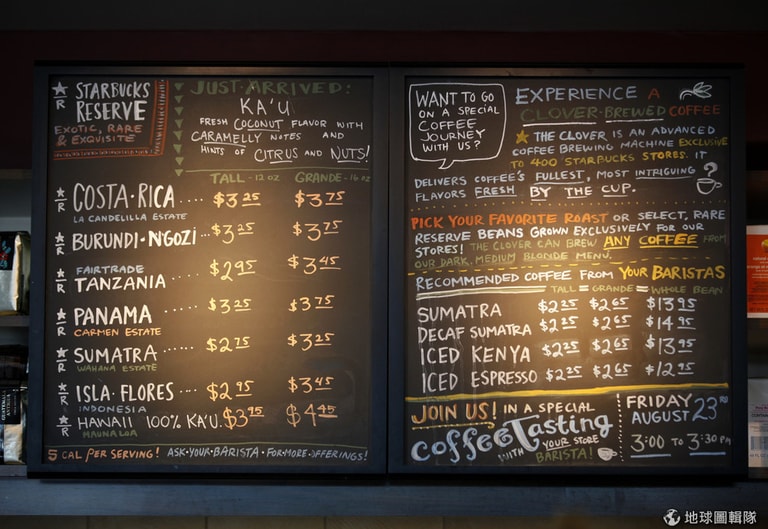 ★ R STARBUCKS
RESERVE
EXOTIC, RARE
& EXQUISITE
JUST·ARRIVED:
KA'U
FRESH COCONUT FLAVOR WITH
CARAMELLY NOTES AND
HINTS OF CITRUS AND NUTS!
TALL - 12 OZ GRANDE - 16 OZ
★ R COSTA·RICA $3 25 $3 75
LA CANDELILLA ESTATE
★ R BURUNDI·NGOZI... $3 25 $3 75
FAIRTRADE
★ R TANZANIA $2 95 $3 45
★ R PANAMA ..... $3 25 $3 75
CARMEN ESTATE
★ R SUMATRA ..... $2 75 $3 25
WAHANA ESTATE
★ R ISLA·FLORES ... $2 95 $3 45
INDONESIA
★ R HAWAII 100% KA'U. $3 95 $4 45
MAUNA LOA
5 CAL PER SERVING! ASK·YOUR·BARISTA·FOR·MORE·OFFERINGS!
WANT TO GO
ON A SPECIAL
COFFEE
JOURNEY
WITH US?
EXPERIENCE A
CLOVER·BREWED COFFEE
★ THE CLOVER IS AN ADVANCED
COFFEE BREWING MACHINE EXCLUSIVE
TO 400 STARBUCKS STORES. IT
DELIVERS COFFEE'S FULLEST, MOST INTRIGUING
FLAVORS FRESH BY THE CUP.
PICK YOUR FAVORITE ROAST OR SELECT, RARE
RESERVE BEANS GROWN EXCLUSIVELY FOR OUR
STORES! THE CLOVER CAN BREW ANY COFFEE FROM
OUR DARK, MEDIUM BLONDE MENU.
RECOMMENDED COFFEE FROM YOUR BARISTAS
TALL — GRANDE — WHOLE BEAN
SUMATRA $2 25 $2 65 $13 95
DECAF SUMATRA $2 25 $2 65 $14 95
ICED KENYA $2 25 $2 65 $13 95
ICED ESPRESSO $2 25 $2 65 $12 95
JOIN US! IN A SPECIAL
Coffee Tasting
WITH YOUR STORE
BARISTA!
FRIDAY
AUGUST 23RD
3:00 TO 3:30 PM
地球圖輯隊